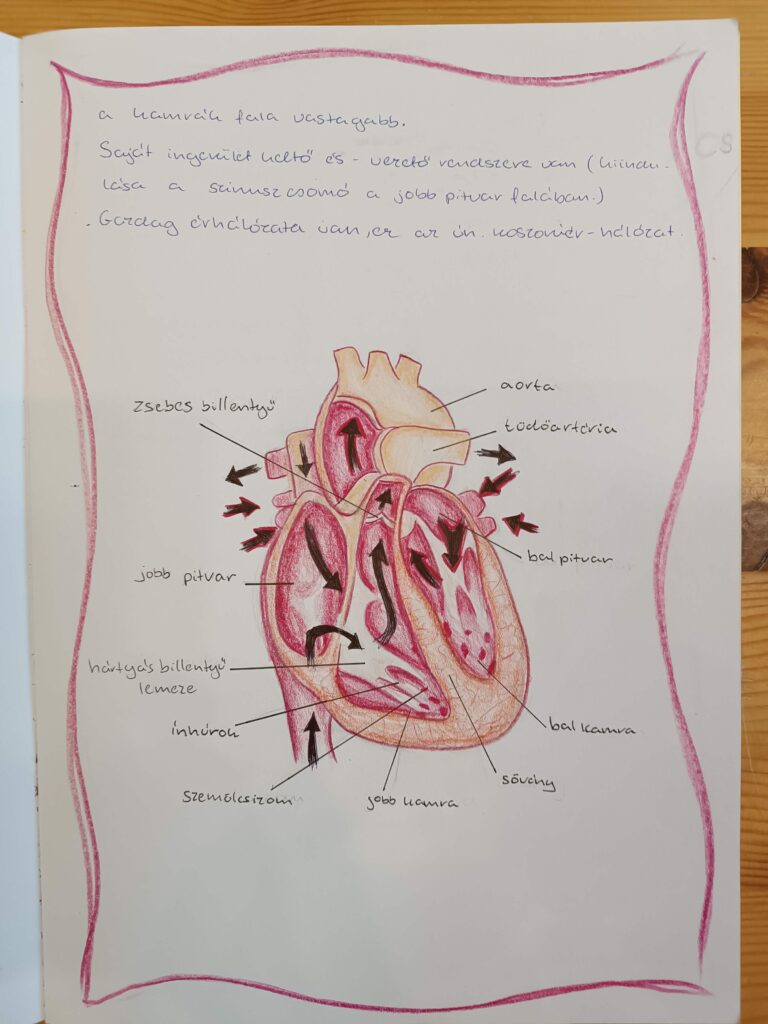 a kamrák fala vastagabb.
Saját ingerület keltő és - vezető rendszere van (kiindu-
lása a szinuszcsomó a jobb pitvar falában.)
. Gazdag érhálózata van, ez az ún. koszorúér-hálózat.
aorta
zsebes billentyű
tüdőartéria
bal pitvar
jobb pitvar
hártyás billentyű
lemeze
ínhúrok
bal kamra
sövény
szemölcsizom
jobb kamra